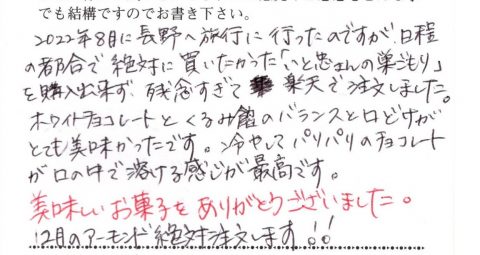 でも結構ですのでお書き下さい。
2022年8月に長野へ旅行に行ったのですが、日程
の都合で絶対に買いたかった「いと忠さんの巣ごもり」
を購入出来ず、残念すぎて 楽天で注文しました。
ホワイトチョコレートとくるみ餡のバランスと口どけが
とても美味かったです。冷やしてパリパリのチョコレート
が口の中で溶ける感じが最高です。
美味しいお菓子をありがとうございました。
12月のアーモンド絶対注文します!!